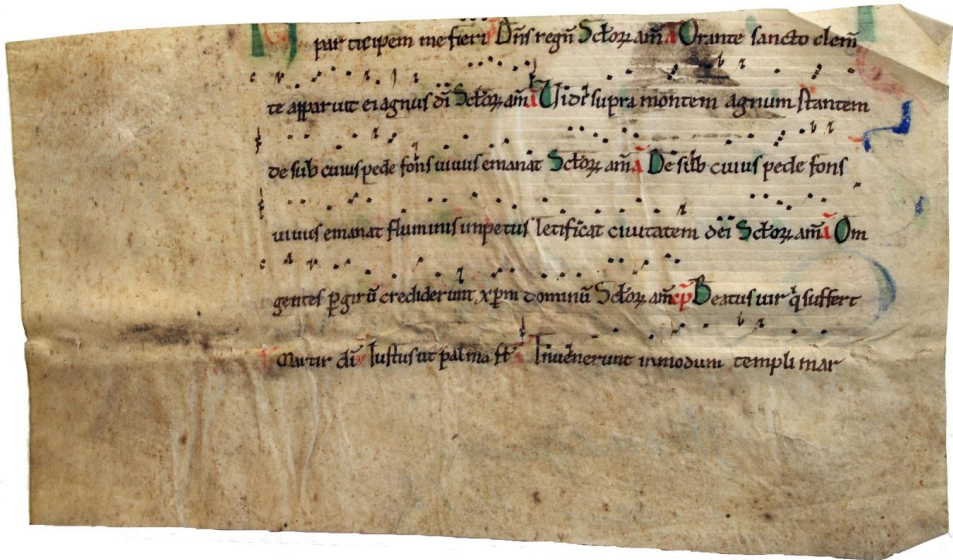 participem me fieri Dn̄s regn̄ Sctoꝝ am̄ a Orante sancto clem̄
te apparuit ei agnus dī Sctoꝝ am̄ a Vidi supra montem agnum stantem
de sub cuius pede fons uiuus emanat Sctoꝝ am̄ a De sub cuius pede fons
uiuus emanat fluminis inpetus letificat ciuitatem dei Sctoꝝ am̄ a Om
gentes ꝑ girū crediderunt xp̄m dominū Sctoꝝ am̄ cp̄ Beatus uir q̄ suffert
Martir dī Iustus ut palma fł Inuenerunt inmodum templi mar